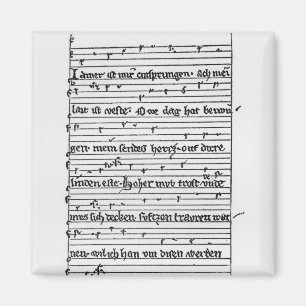 Iamer ist mir entsprungen. ach mei
lait ist veste. Owe dag hat
gen. mein sendes hercz. ouf dure
linden este. Hoher mvt trost. vnde
mvs sich decken. sufczen trauren wai
nen. wil ich han vm disen werden